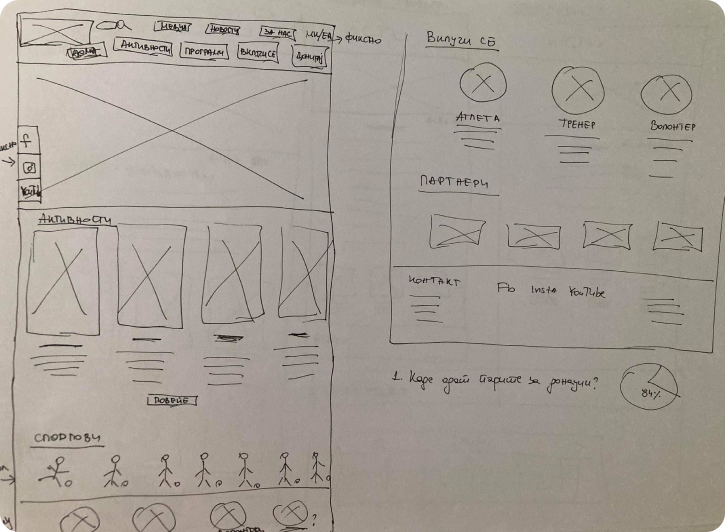 МЕДИА НОВОСТИ ЗА НАС МК/EN → ФИКСНО
ДОМА АКТИВНОСТИ ПРОГРАМИ ВКЛУЧИ СЕ ДОНИРАЈ
f
YouTube
АКТИВНОСТИ
ПОВЕЌЕ
СПОРТОВИ
?
ВКЛУЧИ СЕ
АТЛЕТА ТРЕНЕР ВОЛОНТЕР
ПАРТНЕРИ
КОНТАКТ Fb Insta YouTube
1. Каде одат парите за донации?
84%